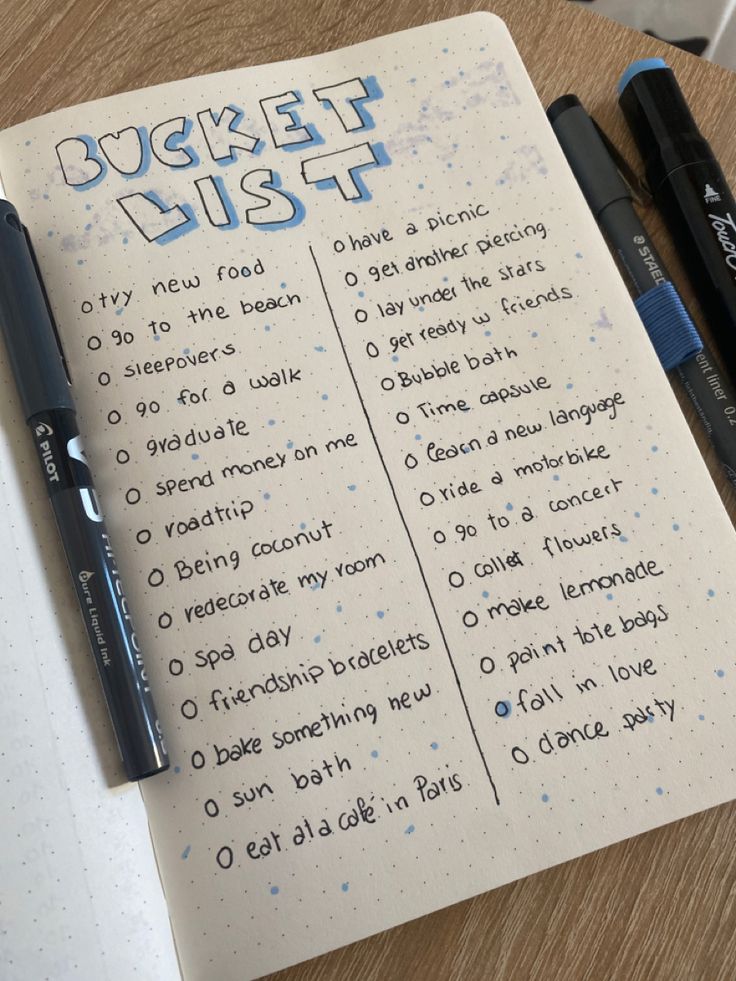 BUCKET
LIST
try new food
go to the beach
sleepovers
go for a walk
graduate
spend money on me
roadtrip
Being coconut
redecorate my room
spa day
friendship bracelets
bake something new
sun bath
eat at a café in Paris
have a picnic
get another piercing
lay under the stars
get ready w friends
Bubble bath
Time capsule
learn a new language
ride a motorbike
go to a concert
collet flowers
make lemonade
paint tote bags
fall in love
dance party
PILOT
Pure Liquid Ink
FINE
Touch
STAED
ent liner 0.2